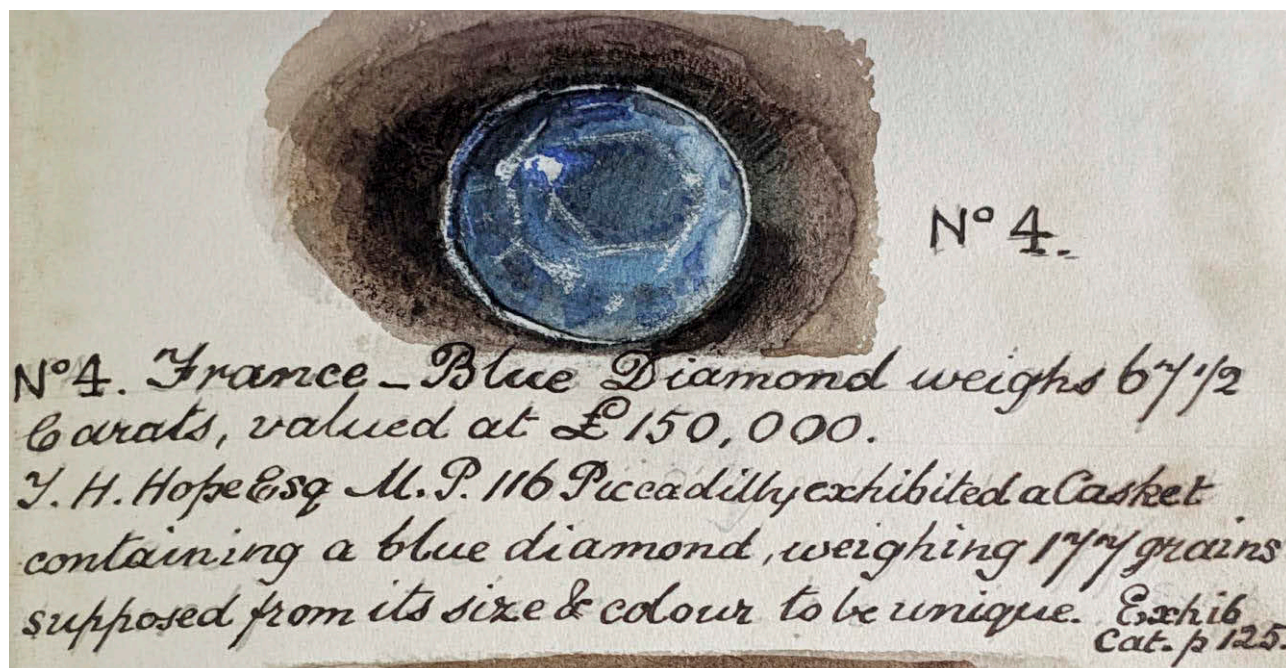 Nº 4.
Nº 4. France - Blue Diamond weighs 67 1/2
Carats, valued at £150,000.
T. H. Hope Esq M. P. 116 Piccadilly exhibited a Casket
containing a blue diamond, weighing 177 grains
supposed from its size & colour to be unique. Exhib
Cat. p 125.